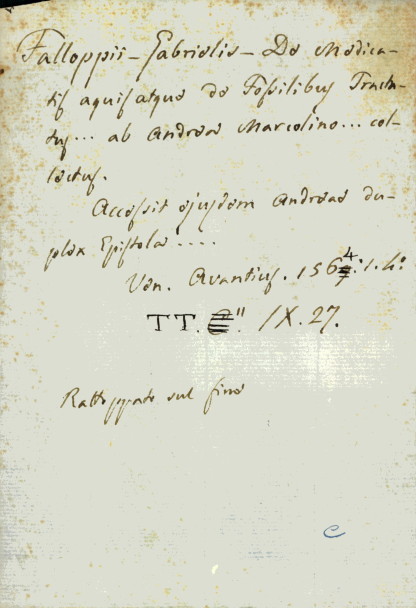 Falloppii - Gabrielis - De Medica-
tis aquis atque de Fossilibus Tracta-
tus... ab Andrea Marcolino... col-
lectus.
Accessit ejusdem Andreae du-
plex Epistola....
Ven. Avantius. 1564. 1. 4.º
TT. IX. 27.
sul fine
e